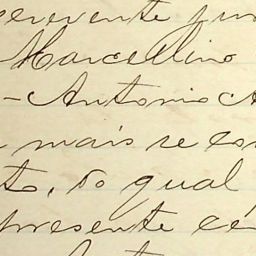 escrevente jur
Marcellino
-Antonio A
mais se con
to, do qual
presente cé